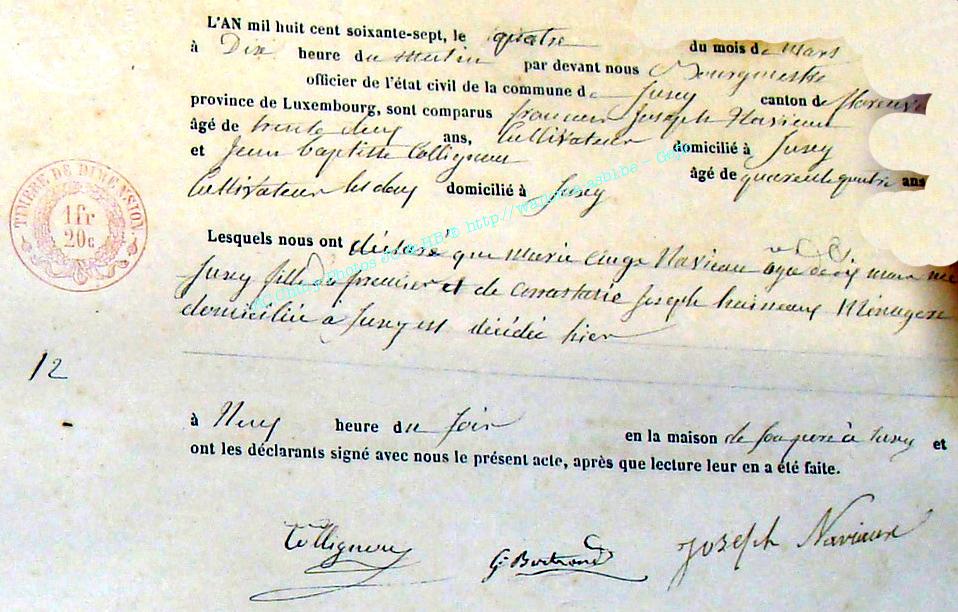 L'AN mil huit cent soixante-sept, le quatre du mois de Mars
à Dix heure du Matin par devant nous Bourgmestre
officier de l'état civil de la commune de Jusey canton de
province de Luxembourg, sont comparus francois Joseph Naviaux
âgé de trente deux ans, Cultivateur domicilié à Jusey
et Jean Baptiste Collignon âgé de quarente quatre ans
Cultivateur les deux domicilié à Jusey
Lesquels nous ont déclaré que Marie Naviaux agé de six mois née
Jusey fille du premier et de Joseph Ménagere
domiciliée a Jusey est décédée hier
12
à Neuf heure du soir en la maison de son pere à Jusey et
ont les déclarants signé avec nous le présent acte, après que lecture leur en a été faite.
Collignon G Bertrand Joseph Naviaux
TIMBRE DE DIMENSION
1 fr
20 c